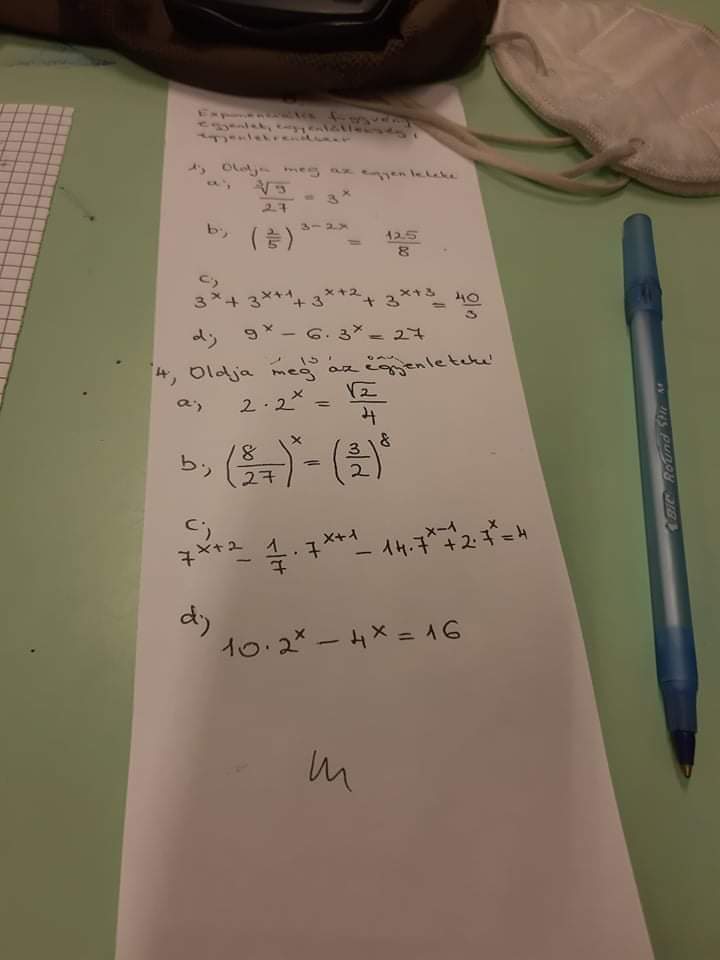 Exponenciális függvény
egyenlet, egyenlőtlenség,
egyenletrendszer
1, Oldja meg az egyenleteke
a; ∛9/27 = 3^x
b; (2/5)^(3-2x) = 125/8
c;
3^x + 3^(x+1) + 3^(x+2) + 3^(x+3) = 40/3
d; 9^x - 6·3^x = 27
4, Oldja meg az egyenleteke
a; 2·2^x = √2/4
b; (8/27)^x = (3/2)^8
c;
7^(x+2) - 1/7·7^(x+1) - 14·7^(x-1) + 2·7^x = 4
d;
10·2^x - 4^x = 16
BIC Round Stic M